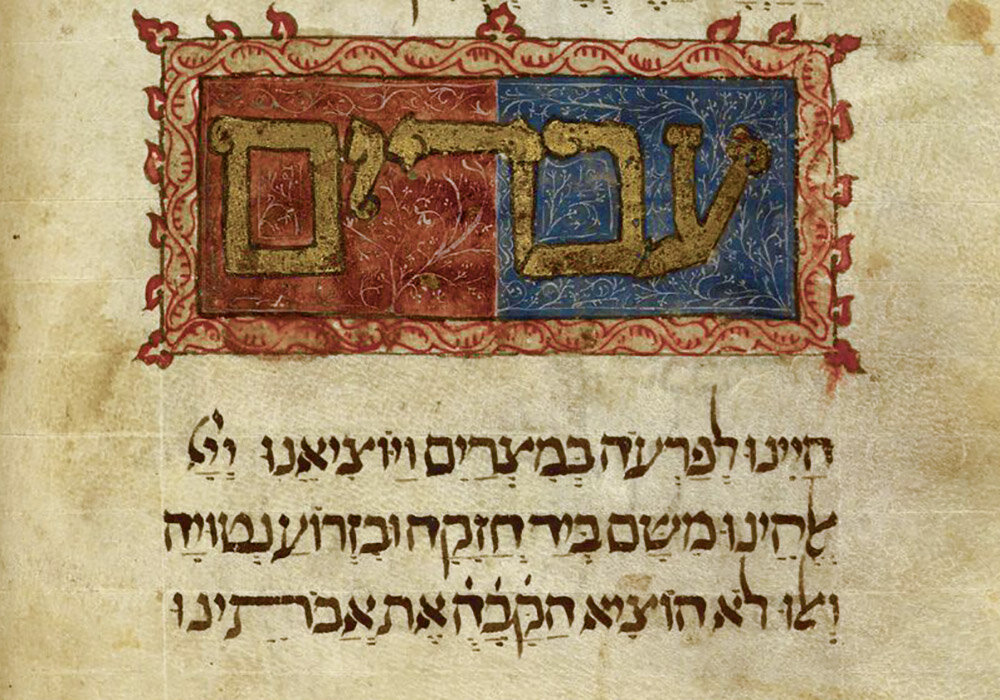 עבדים
היינו לפרעה במצרים ויוציאנו יי
אלהינו משם ביד חזקה ובזרוע נטויה
ואלו לא הוציא הקבה את אבותינו